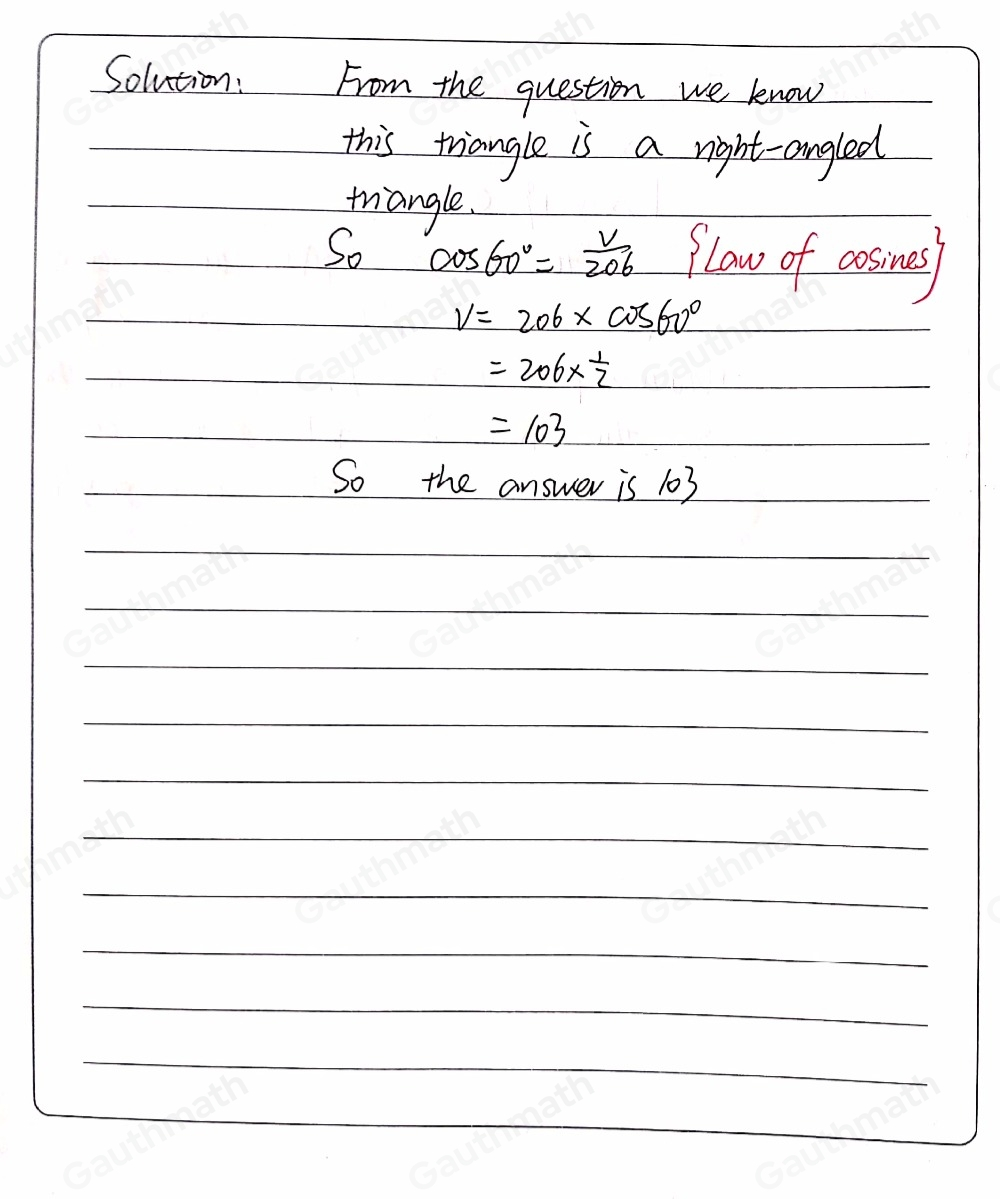 Solution: From the question we know
this triangle is a right-angled
triangle.
So cos60°= V/206 {Law of cosines}
V= 206 × cos60°
= 206×1/2
= 103
So the answer is 103
Gauthmath